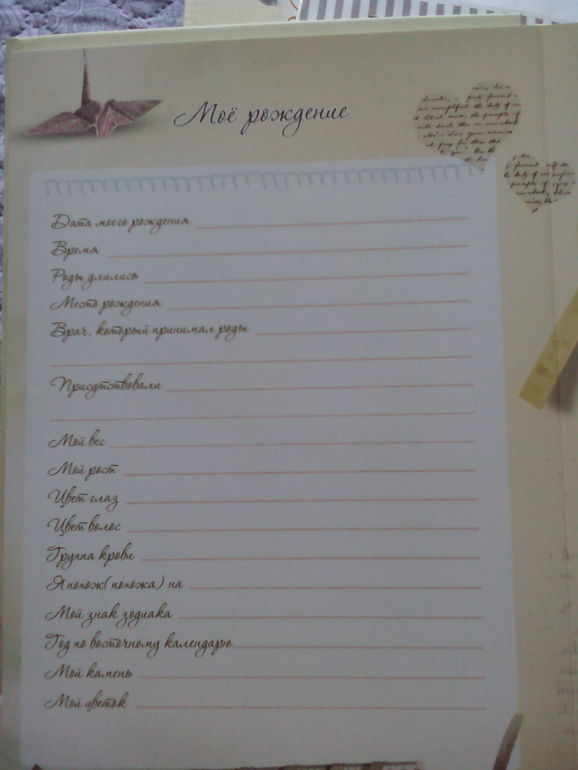 Моё рождение
Дата моего рождения
Время
Роды длились
Место рождения
Врач, который принимал роды
Присутствовали
Мой вес
Мой рост
Цвет глаз
Цвет волос
Группа крови
Я похож(похожа) на
Мой знак зодиака
Год по восточному календарю
Мой камень
Мой цветок